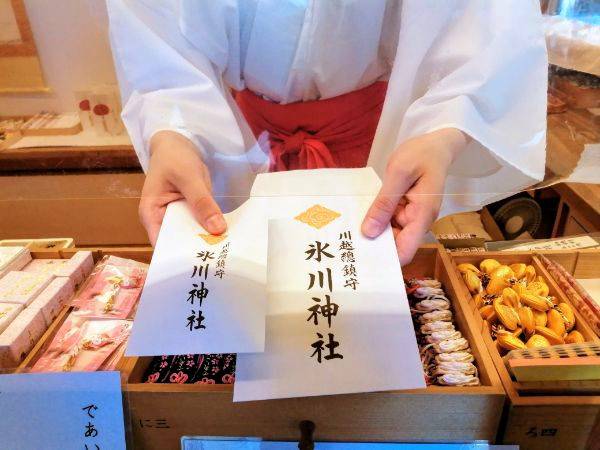 川越總鎮守
氷川神社
川越總鎮守
氷川神社
であい
に三
ろ四